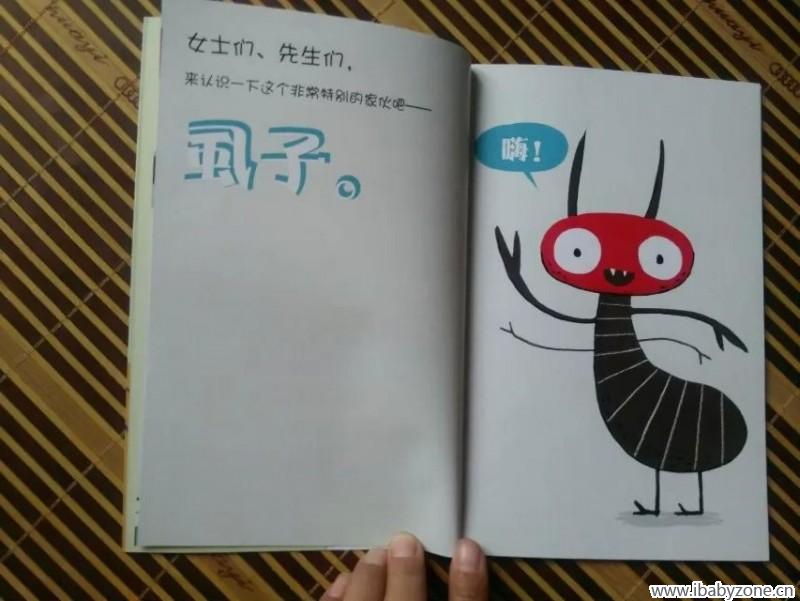 女士们、先生们，
来认识一下这个非常特别的家伙吧——
虱子。
嗨！
www.ibabyzone.cn